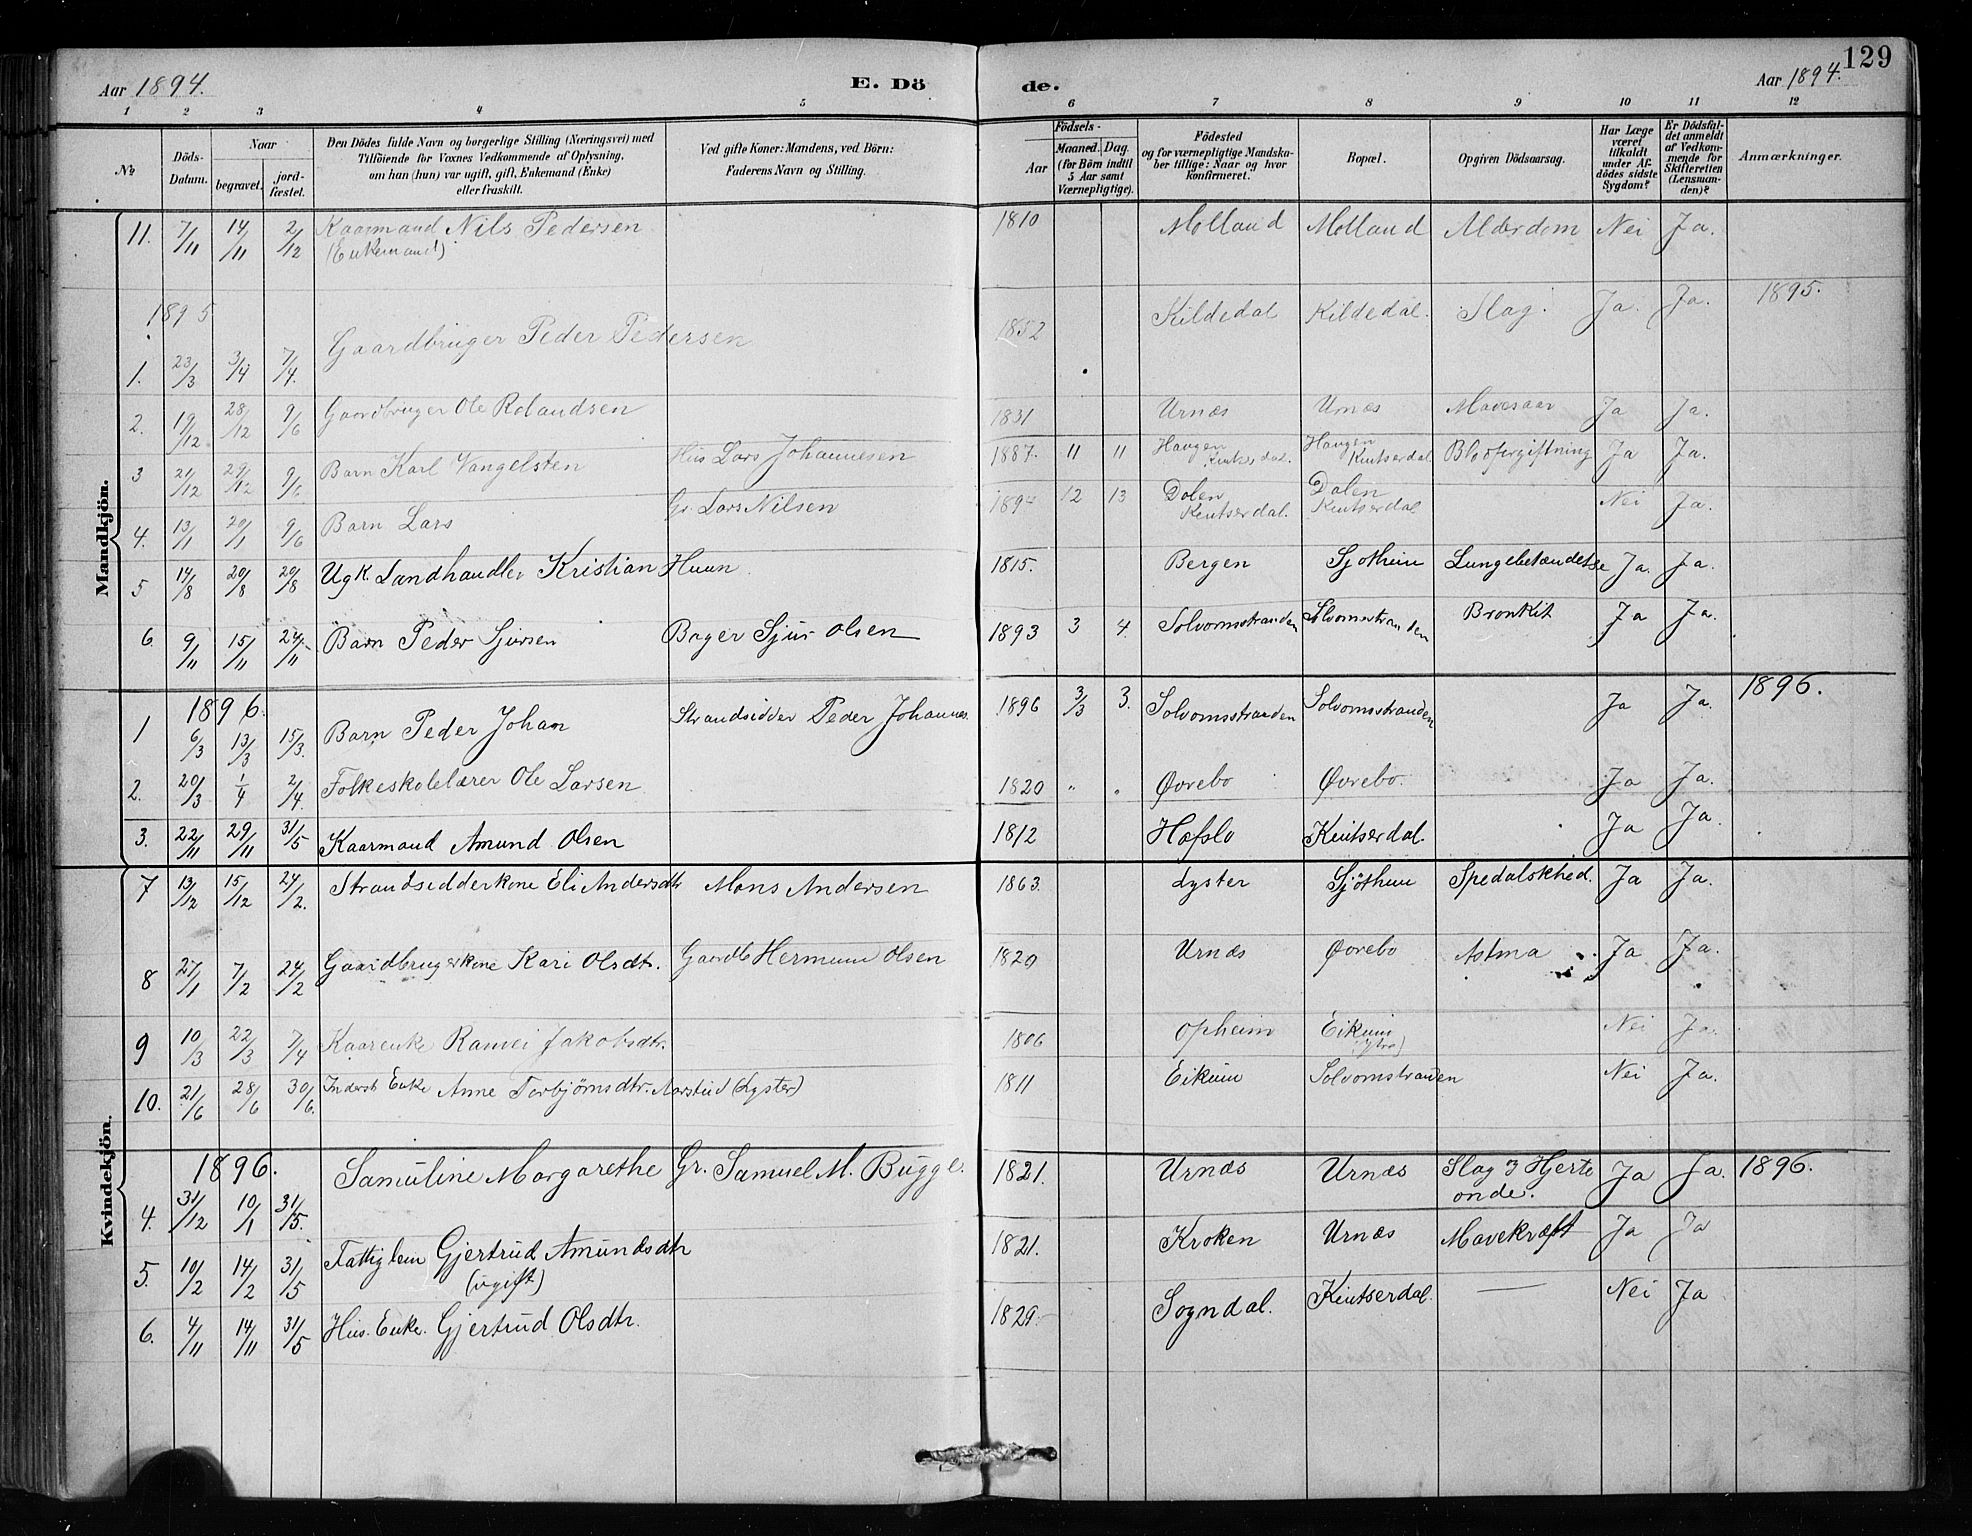 129
Aar 1894. E. Dö de. Aar 1894.
1 2 3 4 5 6 7 8 9 10 11 12
No | Döds-Datum. | Naar begravet. | jord-fæstet. | Den Dödes fulde Navn og borgerlige Stilling (Næringsvei) med Tilföiende for Voxnes Vedkommende af Oplysning, om han (hun) var ugift, gift, Enkemand (Enke) eller fraskilt. | Ved gifte Koner: Mandens, ved Börn: Faderens Navn og Stilling. | Födsels- Aar | Maaned. Dag. (for Börn indtil 5 Aar samt Værnepligtige). | Födested og for værnepligtige Mandska-ber tillige: Naar og hvor konfirmeret. | Bopæl. | Opgiven Dödsaarsag. | Har Læge været tilkaldt under Af-dödes sidste Sygdom? | Er Dödsfal-det anmeldt af Vedkom-mende for Skifteretten (Lensman-den)? | Anmærkninger.
Mandkjön.
11. 7/11 14/11 2/12 Kaarmand Nils Pedersen 1810 Molland Molland Alderdom Nei Ja.
(Enkemand)
1895 1895.
1. 23/3 3/4 7/4. Gaardbruger Peder Pedersen 1852 Kildedal Kildedal. Slag. Ja. Ja.
2. 19/12 28/12 9/6 Gaardbruger Ole Rolandsen 1831 Urnæs Urnæs Mavesaar Ja Ja.
3 21/12 29/12 9/6 Barn Karl Vangelsten Hus Lars Johannesen 1887. 11 11 Haugen Kintserdal. Haugen Kintserdal. Blodforgiftning Ja Ja.
4. 13/1 20/1 9/6 Barn Lars Gr. Lars Nilsen 1894 12 13 Dalen Kintserdal. Dalen Kintserdal Nei Ja.
5 14/8 20/8 20/8 Ugk. Landhandler Kristian Huun 1815. Bergen Sjøtheim Lungebetændelse Ja. Ja.
6. 9/11 15/11 24/11 Barn Peder Sjursen Bager Sjur Olsen 1893 3 4. Solvornsstranden Solvornsstranden Bronkit Ja Ja.
1896. 1896.
1 6/3 13/3 15/3. Barn Peder Johan Strandsidder Peder Johannes. 1896 3/3 3. Solvornsstranden Solvornsstranden Ja Ja.
2. 20/3 1/4 2/4. Folkeskolelærer Ole Larsen 1820 " " Øvrebo Øvrebo. Ja Ja.
3. 22/11 29/11 31/5 Kaarmand Amund Olsen 1812 Hafslo Kintserdal. Ja Ja.
Kvindekjön.
7 13/12 15/12 24/2. Strandsidderkone Eli Andersdtr Mons Andersen 1863. Lyster Sjøtheim Spedalskhed. Ja Ja.
8 27/1 7/2 24/2 Gaardbrugerkone Kari Olsdtr. Gaardb Hermund Olsen 1820 Urnæs Øvrebo Astma Ja Ja.
9 10/3 22/3 7/4 Kaarenke Ranvei Jakobsdtr. 1806 Opheim Eikum (ytre) Nei Ja.
10. 21/6 28/6 30/6. Inderst Enke Anne Torbjørnsdtr. Aarstud (Lyster) 1811 Eikum Solvornstranden Nei Ja.
1896. 1896.
4. 31/12 10/1 31/5. Samuline Margarethe Gr. Samuel M. Bugge. 1821. Urnæs Urnæs Slag & Hjerte onde. Ja Ja.
5. 10/2 14/2 31/5 Fattiglem Gjertrud Amundsdtr 1821. Kroken Urnæs Mavekræft Ja Ja
(ugift)
6. 4/11 14/11 31/5 Hus. Enke. Gjertrud Olsdtr. 1829. Sogndal. Kintserdal. — Nei Ja